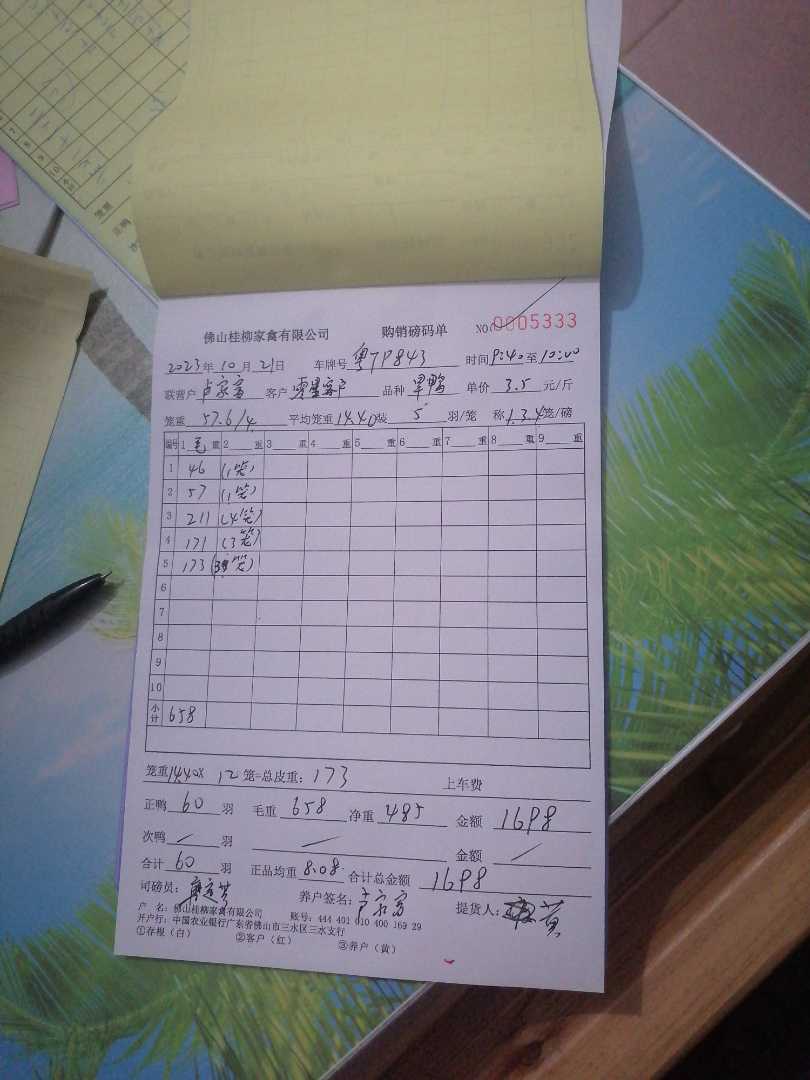 佛山桂柳家禽有限公司 购销磅码单 NO:0005333
2023年 10月 21日 车牌号 粤TP843 时间 9:40 至 10:00
联营户 卢家富 客户 零星客户 品种 旱鸭 单价 3.5 元/斤
笼重 57.6/4 平均笼重 14.40 装 5 羽/笼 称 1.3.4 笼/磅
编号 1 毛 重 2 重 3 重 4 重 5 重 6 重 7 重 8 重 9 重
1 46 (1笼)
2 57 (1笼)
3 211 (4笼)
4 171 (3笼)
5 173 (3笼)
6
7
8
9
10
小计 658
笼重 14.40X 12 笼=总皮重: 173 上车费
正鸭 60 羽 毛重 658 净重 485 金额 1698
次鸭 / 羽 / 金额 /
合计 60 羽 正品均重 8.08 合计总金额 1698
司磅员: 养户签名: 卢家富 提货人:
户 名: 佛山桂柳家禽有限公司 账号: 444 401 010 400 169 29
开户行: 中国农业银行广东省佛山市三水区三水支行
①存根(白) ②客户(红) ③养户(黄)